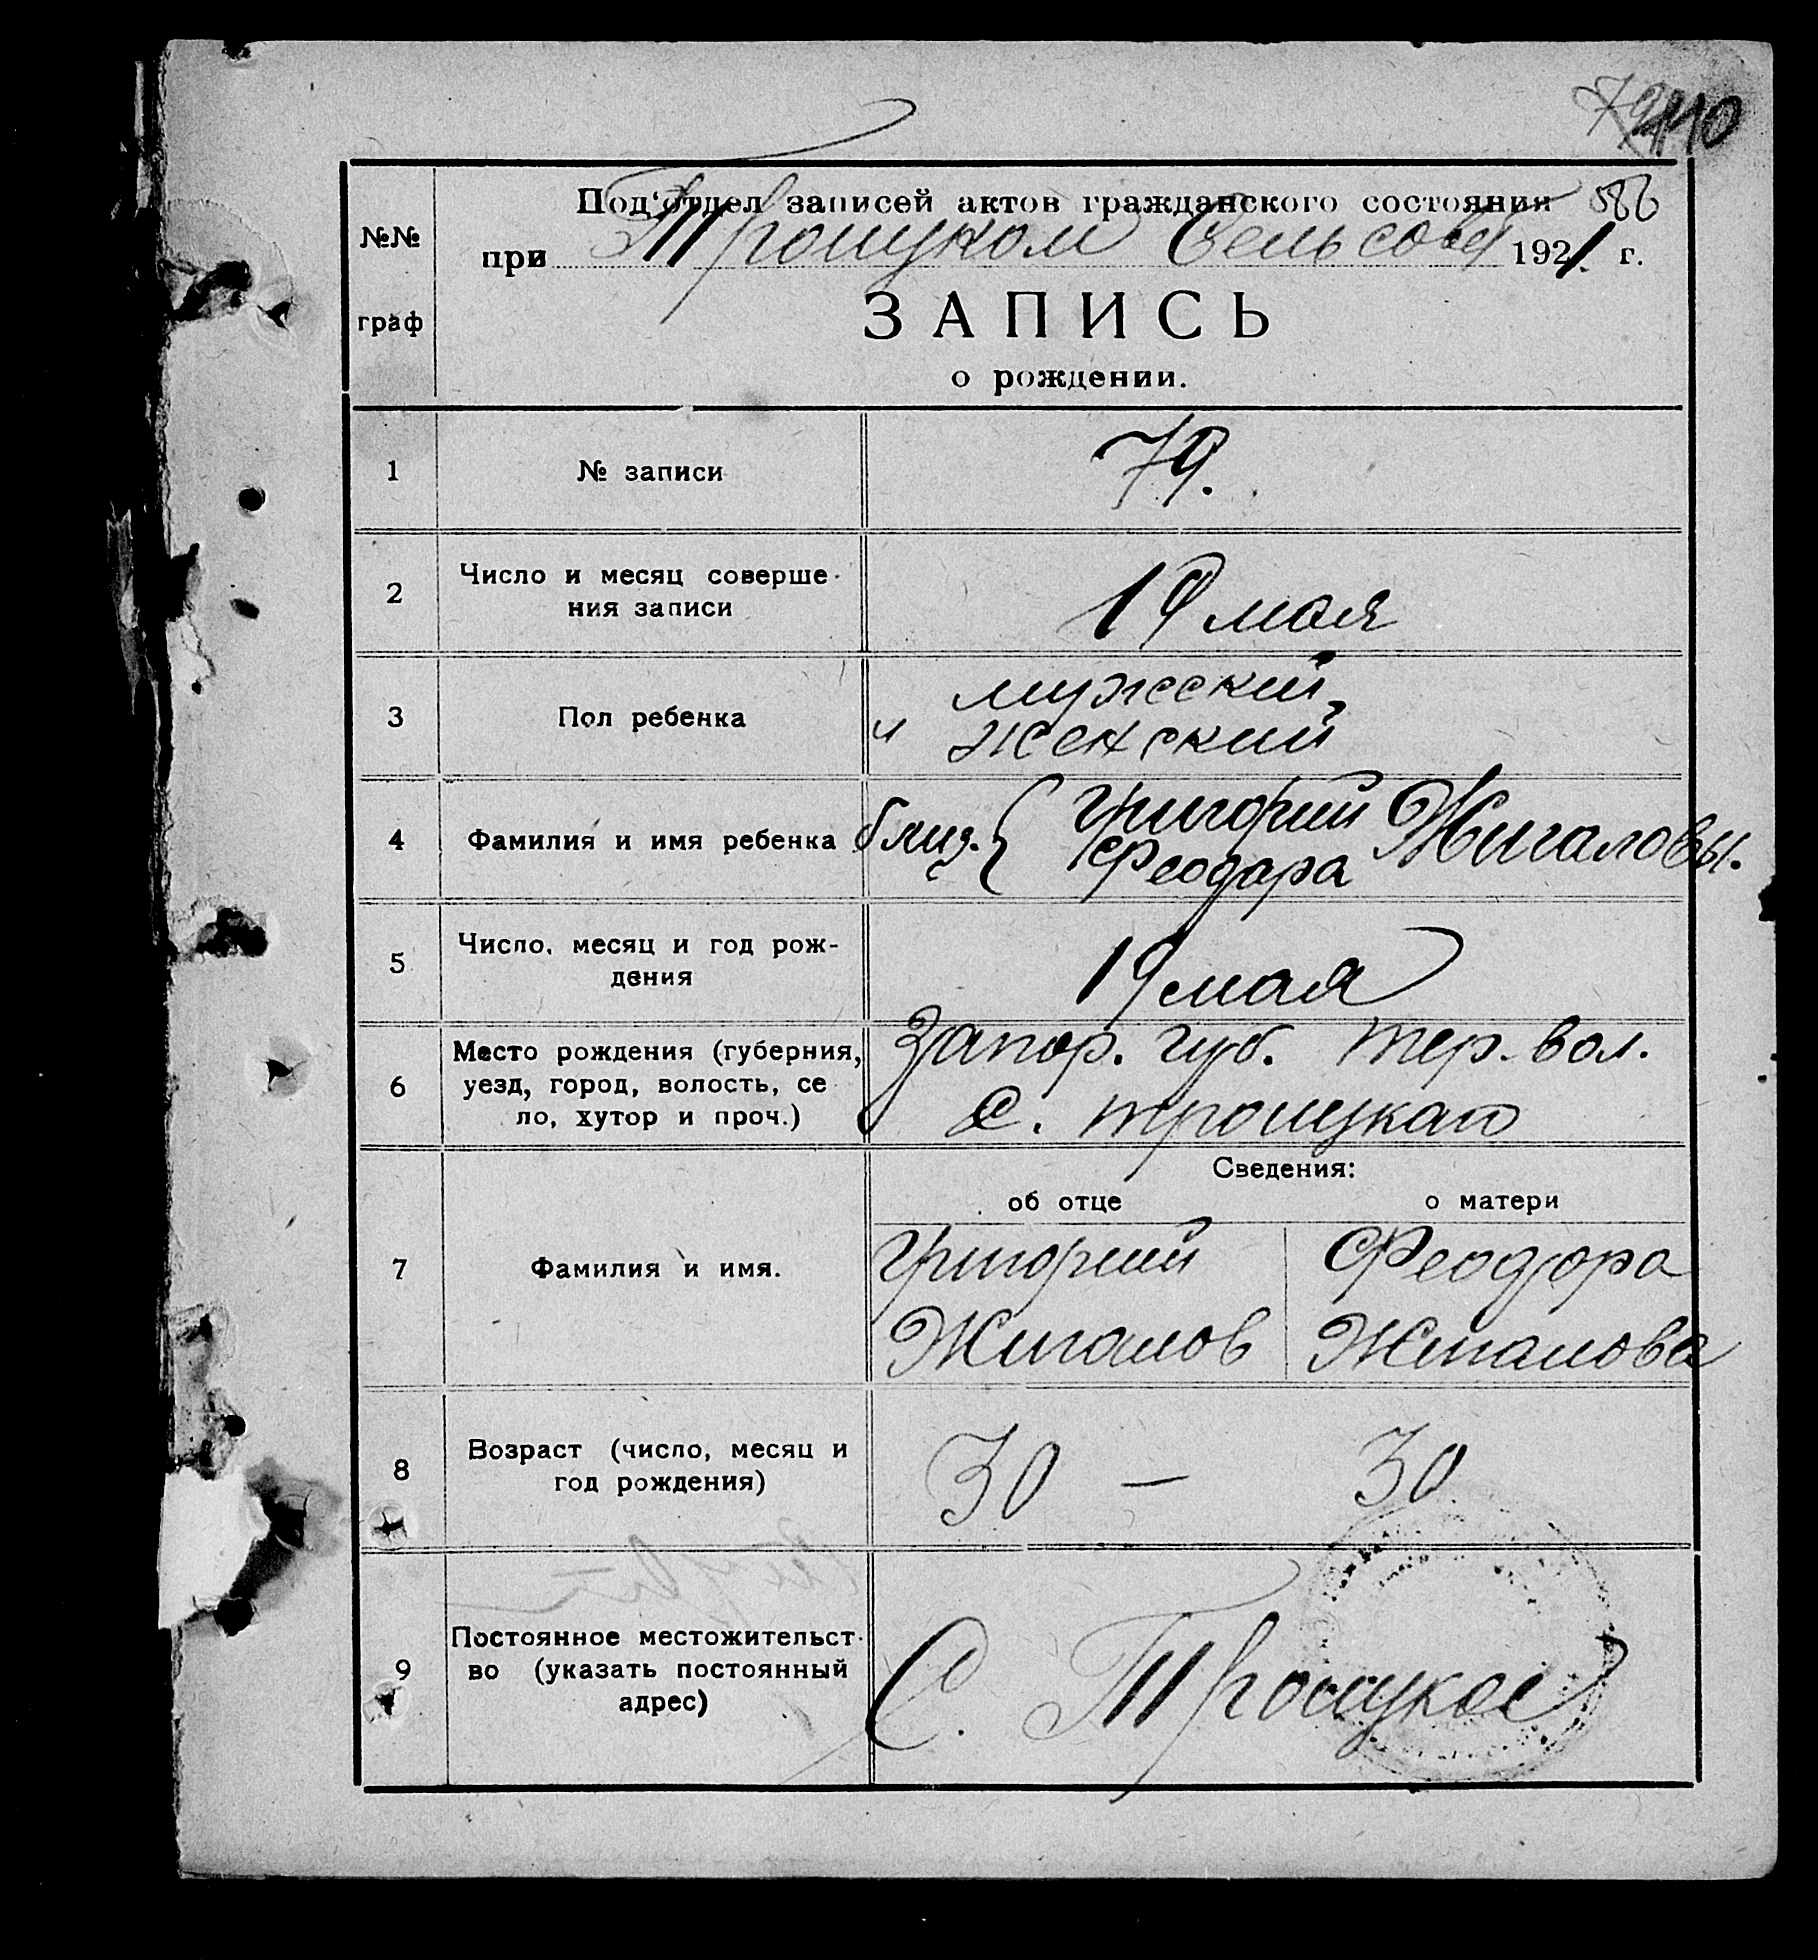 Под‘отдел записей актов гражданского состояния 586
при Троицком Сельсовет 1921. г.
№№
граф
ЗАПИСЬ
о рождении.
1 № записи 79.
2 Число и месяц соверше-
ния записи 19 мая
3 Пол ребенка мужеский,
и женский
4 Фамилия и имя ребенка близ. { Григорий Жигаловы.
Феодора
5 Число, месяц и год рож-
дения 19 мая
6 Место рождения (губерния, Запор. губ. Тер. вол.
уезд, город, волость, се
ло, хутор и проч.) С. Троицкаго
Сведения:
об отце о матери
7 Фамилия и имя. Григорий Феодора
Жигалов Жигалова
8 Возраст (число, месяц и
год рождения) 30 — 30
9 Постоянное местожительст-
во (указать постоянный
адрес) С. Троицкое